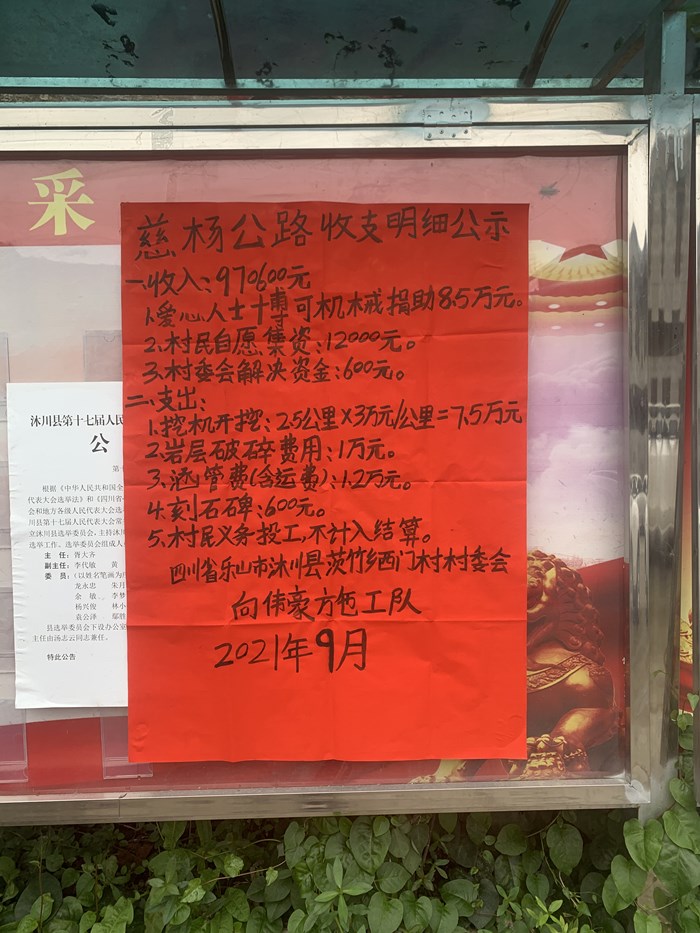 采
慈杨公路收支明细公示
一、收入:970600元
1.爱心人士博可机械捐助8.5万元。
2.村民自愿集资:12000元。
3.村委会解决资金:600元。
二、支出:
1.挖机开挖:2.5公里×3万元/公里=7.5万元
2.岩层破碎费用:1万元。
3.涵管费(含运费):1.2万元。
4.刻石碑:600元。
5.村民义务投工,不计入结算。
四川省乐山市沐川县茨竹乡西门村村委会
向伟豪方施工队
2021年9月
沐川县第十七届人民
公
第
根据《中华人民共和国全
代表大会选举法》和《四川省
会和地方各级人民代表大会选
川县第十七届人民代表大会常
立沐川县选举委员会,主持沐川
选举工作。选举委员会组成人
主 任:胥大齐
副主任:李代敏 黄
委 员:(以姓名笔画为
龙永忠 朱月
余 敏 李梦
杨兴俊 林小
袁公泽 鄢胜
县选举委员会下设办公室
主任由汤志云同志兼任。
特此公告